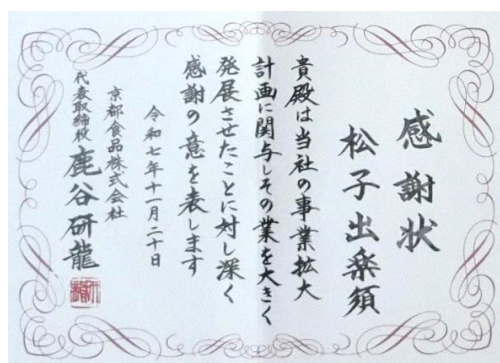 感謝状
松子出楽須
貴殿は当社の事業拡大
計画に関与しその業を大きく
発展させたことに対し深く
感謝の意を表します
令和七年十一月二十日
京都食品株式会社
代表取締役 鹿谷研龍